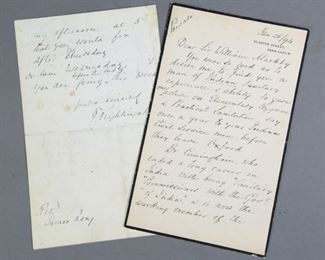 ing afternoon at 5
that you would fix
after Thursday
on Wednesday
Yours sincerely
F Nightingale
Revd
James Long
Private
Jan 26/94
10, SOUTH STREET,
PARK LANE. W.
Dear Sir William Markby
You were so good as to
desire me to find you a
man of Indian Sanitary
Experience, & ability to give
Lectures on Elementary Hygiene
& Practical Sanitation, say
once a year to your Indian
Civil Service men before
they leave Oxford
Dr. Cuningham, who
ended a long career in
India with being Sanitary
"Commissioner with the Govt
of India", & is now the
working member of the